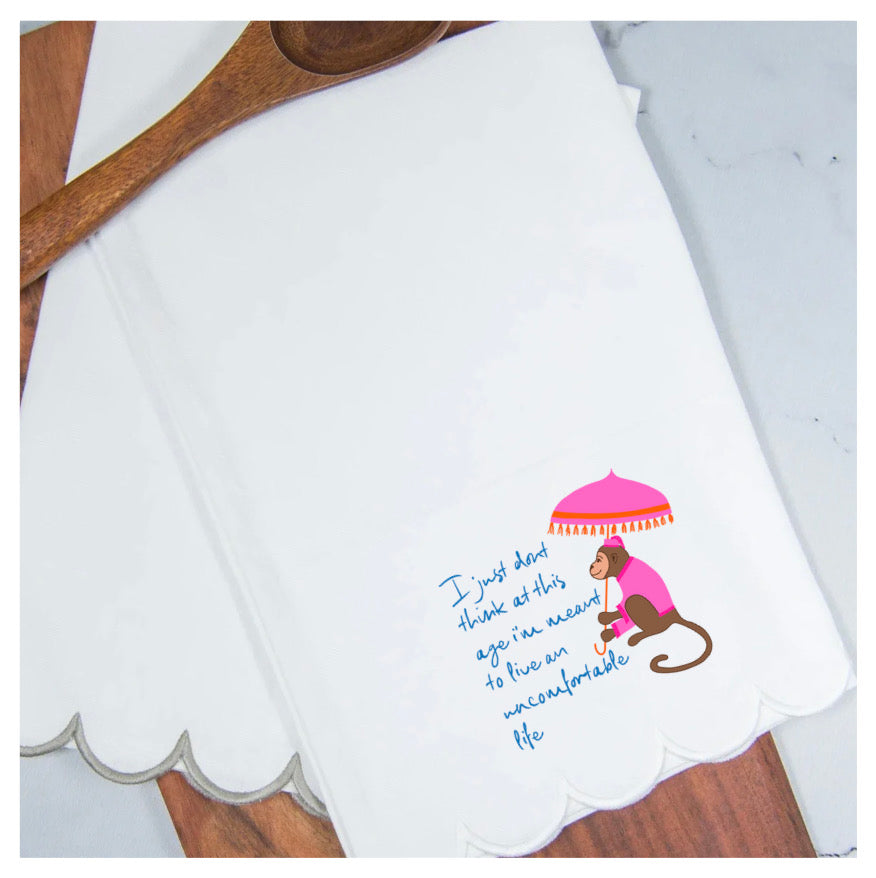 I just dont
think at this
age i'm meant
to live an
uncomfortable
life